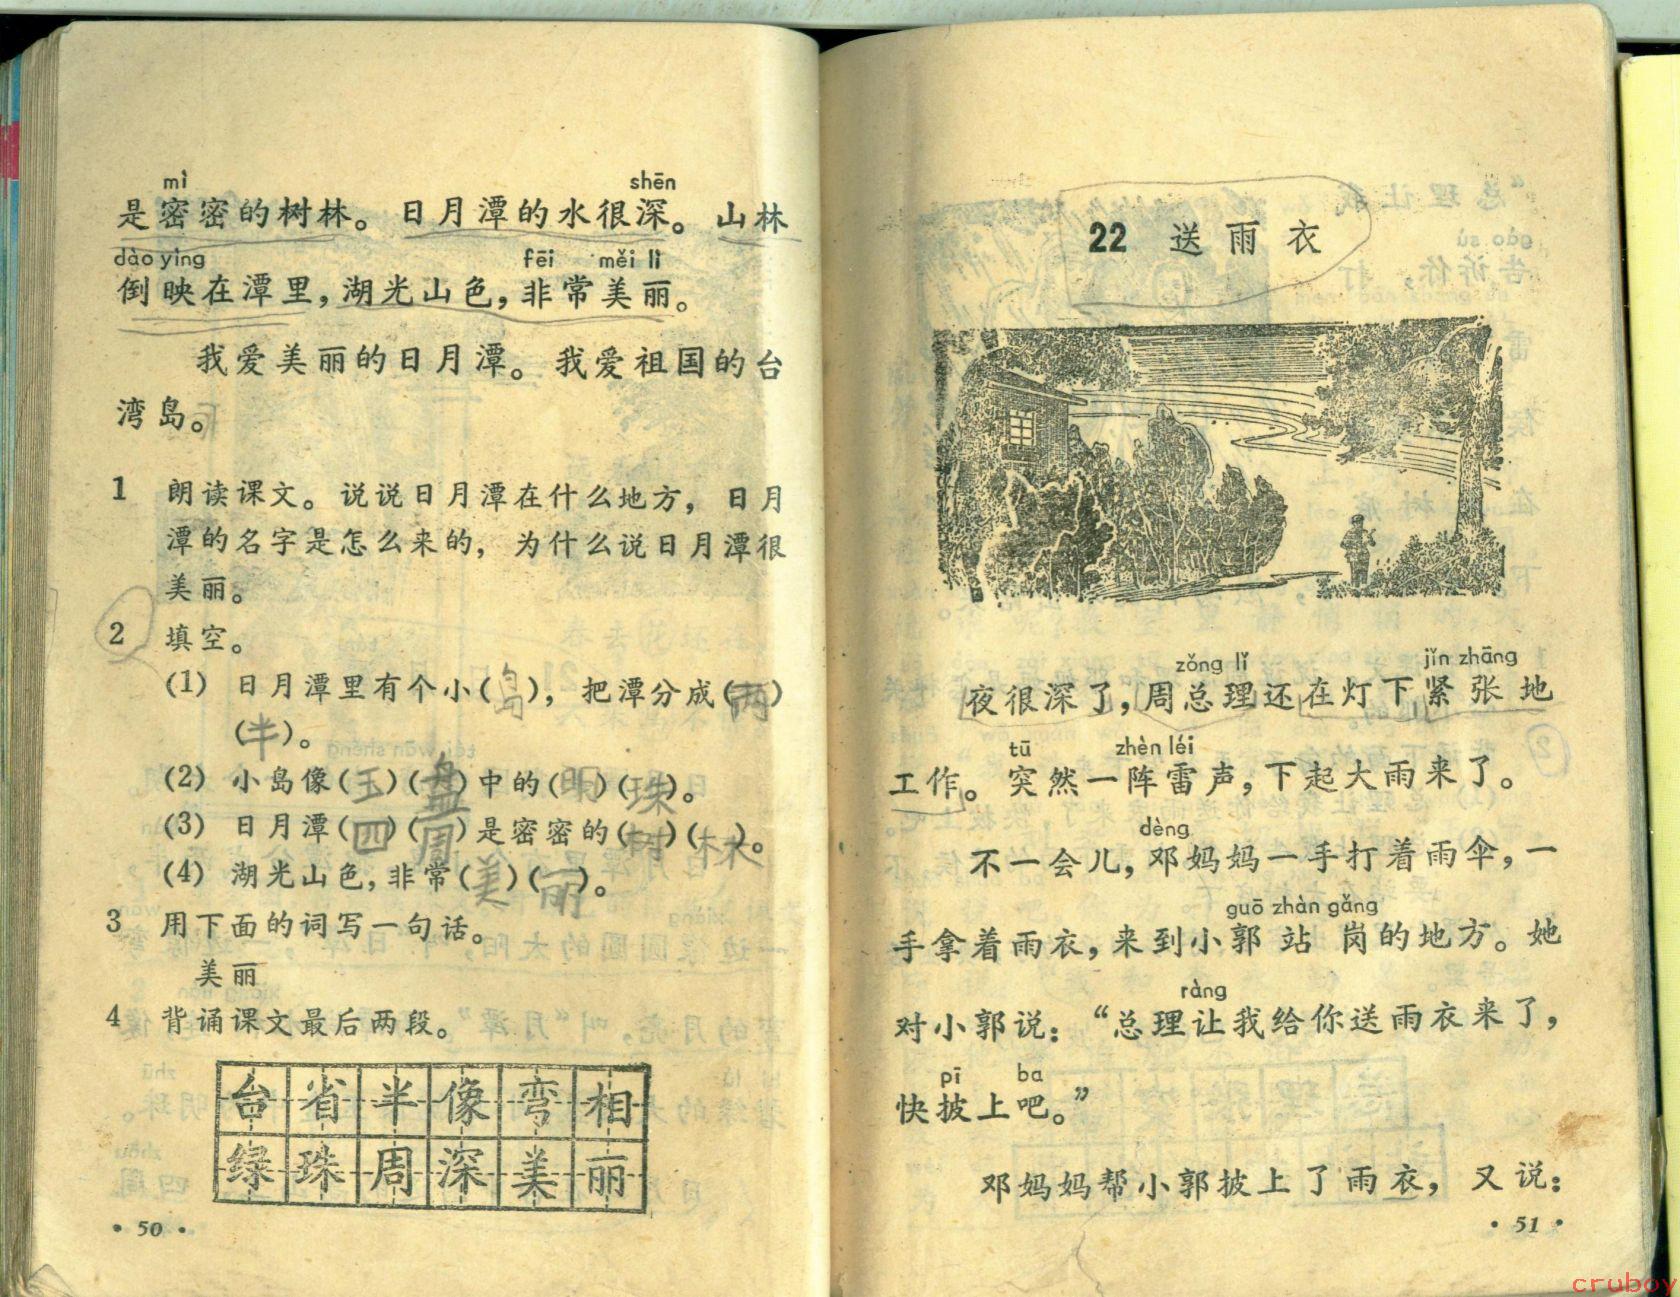 mì shēn
是密密的树林。日月潭的水很深。山林
dào yìng fēi měi lì
倒映在潭里，湖光山色，非常美丽。
我爱美丽的日月潭。我爱祖国的台
湾岛。
1 朗读课文。说说日月潭在什么地方，日月
潭的名字是怎么来的，为什么说日月潭很
美丽。
2 填空。
(1) 日月潭里有个小(岛)，把潭分成(两)
(半)。
(2) 小岛像(玉)(盘)中的(明)(珠)。
(3) 日月潭(四)(周)是密密的(树)(林)。
(4) 湖光山色，非常(美)(丽)。
3 用下面的词写一句话。
美丽
4 背诵课文最后两段。
台省半像弯相
绿珠周深美丽
·50·
22 送雨衣
zǒng lǐ jǐn zhāng
夜很深了，周总理还在灯下紧张地
tū zhèn léi
工作。突然一阵雷声，下起大雨来了。
dèng
不一会儿，邓妈妈一手打着雨伞，一
guō zhàn gǎng
手拿着雨衣，来到小郭站岗的地方。她
ràng
对小郭说：“总理让我给你送雨衣来了，
pī ba
快披上吧。”
邓妈妈帮小郭披上了雨衣，又说：
·51·
cruboy